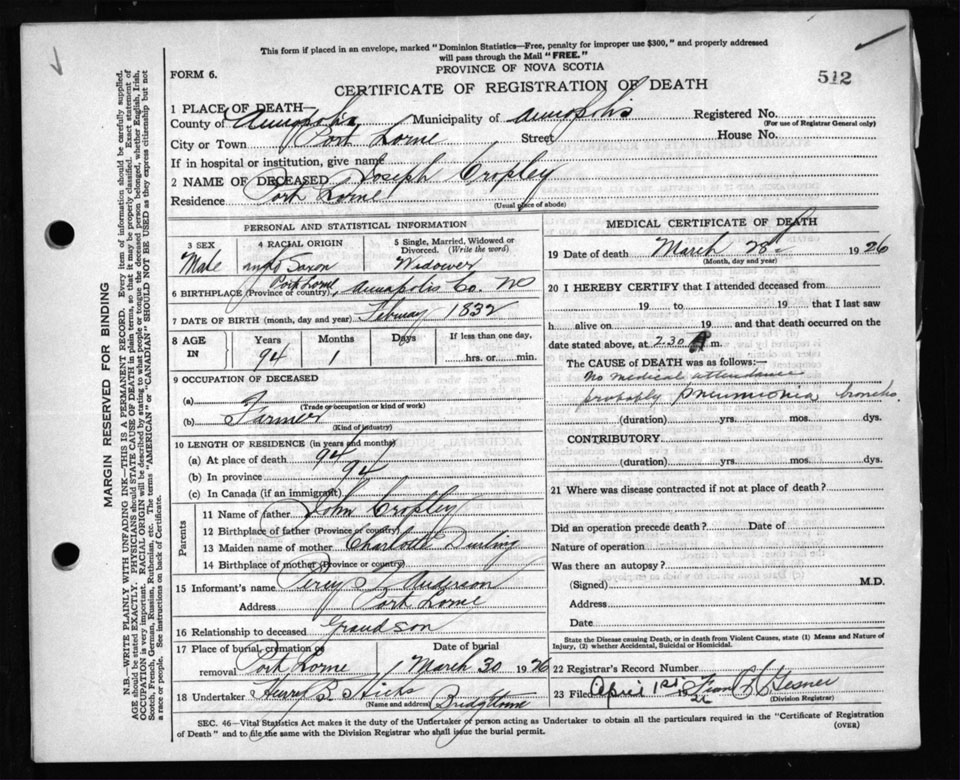 This form if placed in an envelope, marked "Dominion Statistics—Free, penalty for improper use $300," and properly addressed
will pass through the Mail "FREE."
PROVINCE OF NOVA SCOTIA
FORM 6.
512
CERTIFICATE OF REGISTRATION OF DEATH
1 PLACE OF DEATH—
County of Annapolis Municipality of Annapolis Registered No.
(For use of Registrar General only)
City or Town Port Lorne Street House No.
If in hospital or institution, give name
2 NAME OF DECEASED Joseph Cropley
Residence Port Lorne
(Usual place of abode)
PERSONAL AND STATISTICAL INFORMATION
3 SEX 4 RACIAL ORIGIN 5 Single, Married, Widowed or Divorced (Write the word)
Male Saxon Widower
Port Lorne
6 BIRTHPLACE (Province or country) Annapolis Co. NS
7 DATE OF BIRTH (month, day and year) February 1832
8 AGE IN Years Months Days If less than one day,
94 1 hrs. or min.
9 OCCUPATION OF DECEASED
(a)
(Trade or occupation or kind of work)
(b) Farmer
(Kind of industry)
10 LENGTH OF RESIDENCE (in years and months)
(a) At place of death 94
(b) In province 94
(c) In Canada (if an immigrant)
Parents
11 Name of father John Cropley
12 Birthplace of father (Province or country)
13 Maiden name of mother Charlotte Durling
14 Birthplace of mother (Province or country)
15 Informant's name Percy Anderson
Address Port Lorne
16 Relationship to deceased Grandson
17 Place of burial, cremation or removal Date of burial
Port Lorne March 30 1926
18 Undertaker Henry B Hicks
(Name and address) Bridgtown
MEDICAL CERTIFICATE OF DEATH
19 Date of death March 28th 1926
(Month, day and year)
20 I HEREBY CERTIFY that I attended deceased from
19 to 19 that I last saw
h alive on 19 and that death occurred on the
date stated above, at 2.30 m.
The CAUSE OF DEATH was as follows:—
No medical attendance
probably pneumonia broncho.
(duration) yrs. mos. dys.
CONTRIBUTORY
(duration) yrs. mos. dys.
21 Where was disease contracted if not at place of death?
Did an operation precede death? Date of
Nature of operation
Was there an autopsy?
(Signed) M.D.
Address
Date
State the Disease causing Death, or in death from Violent Causes, state (1) Means and Nature of
Injury, (2) whether Accidental, Suicidal or Homicidal.
22 Registrar's Record Number
23 Filed April 1st Gesner
(Division Registrar)
SEC. 46—Vital Statistics Act makes it the duty of the Undertaker or person acting as Undertaker to obtain all the particulars required in the "Certificate of Registration
of Death" and to file the same with the Division Registrar who shall issue the burial permit.
(OVER)
MARGIN RESERVED FOR BINDING
N.B.—WRITE PLAINLY WITH UNFADING INK—THIS IS A PERMANENT RECORD. Every item of information should be carefully supplied.
AGE should be stated EXACTLY. PHYSICIANS should STATE CAUSE OF DEATH in plain terms, so that it may be properly classified. Exact statement of
OCCUPATION is very important. RACIAL ORIGIN will be described by stating to what people or tongue the deceased person belonged, whether English, Irish,
Scotch, French, German, Russian, Ruthenian, etc. The terms "AMERICAN" or "CANADIAN" SHOULD NOT BE USED as they express citizenship but not
a race or people. See instructions on back of Certificate.